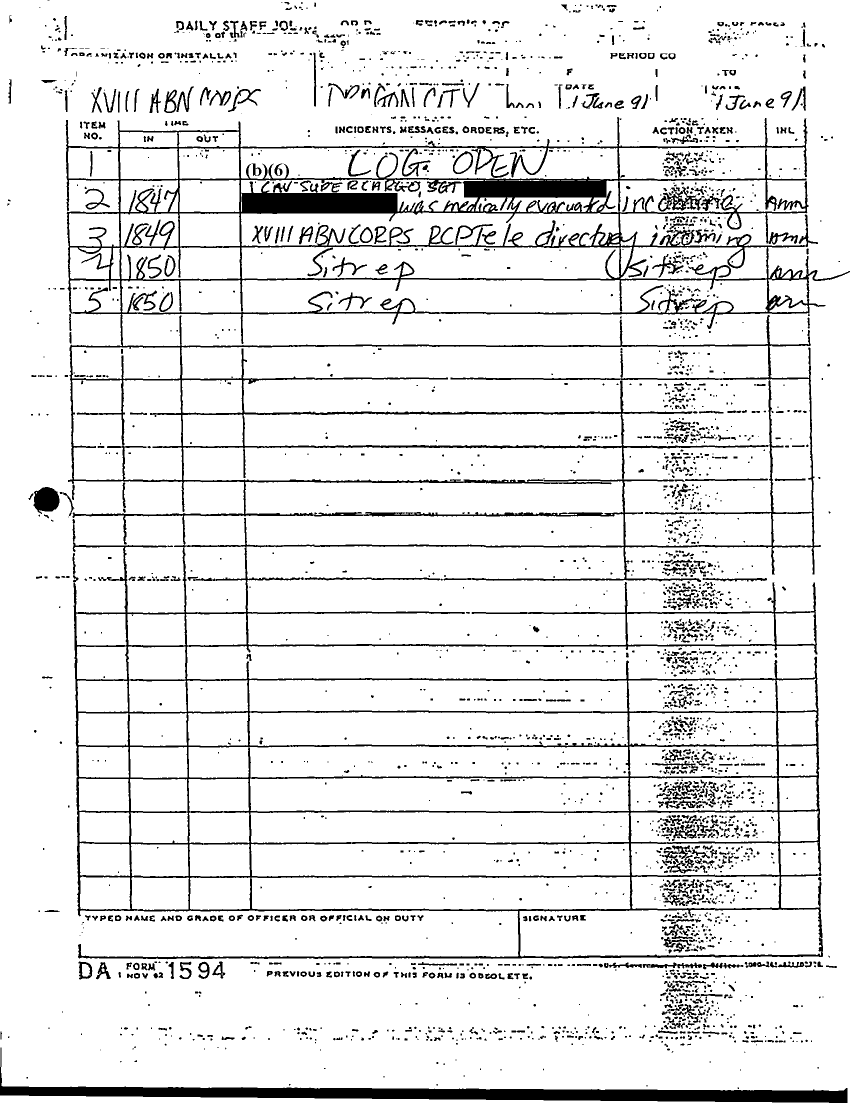 DAILY STAFF JOU
OF PAGES
ORGANIZATION OR INSTALLAT
PERIOD CO
TO
DATE
XVIII ABN CORPS
DRAGON CITY
1 June 91
1 June 91
ITEM NO.
TIME
IN OUT
INCIDENTS, MESSAGES, ORDERS, ETC.
ACTION TAKEN
INL
1 LOG OPEN
(b)(6)
2 1847 1 CAV SUPERCARGO, SGT
, was medically evacuated incoming
3 1849 XVIII ABN CORPS RCP Tele directory incoming
4 1850 Sitrep Sitrep
5 1850 Sitrep Sitrep
TYPED NAME AND GRADE OF OFFICER OR OFFICIAL ON DUTY
SIGNATURE
DA FORM 1 NOV 62 1594
PREVIOUS EDITION OF THIS FORM IS OBSOLETE.